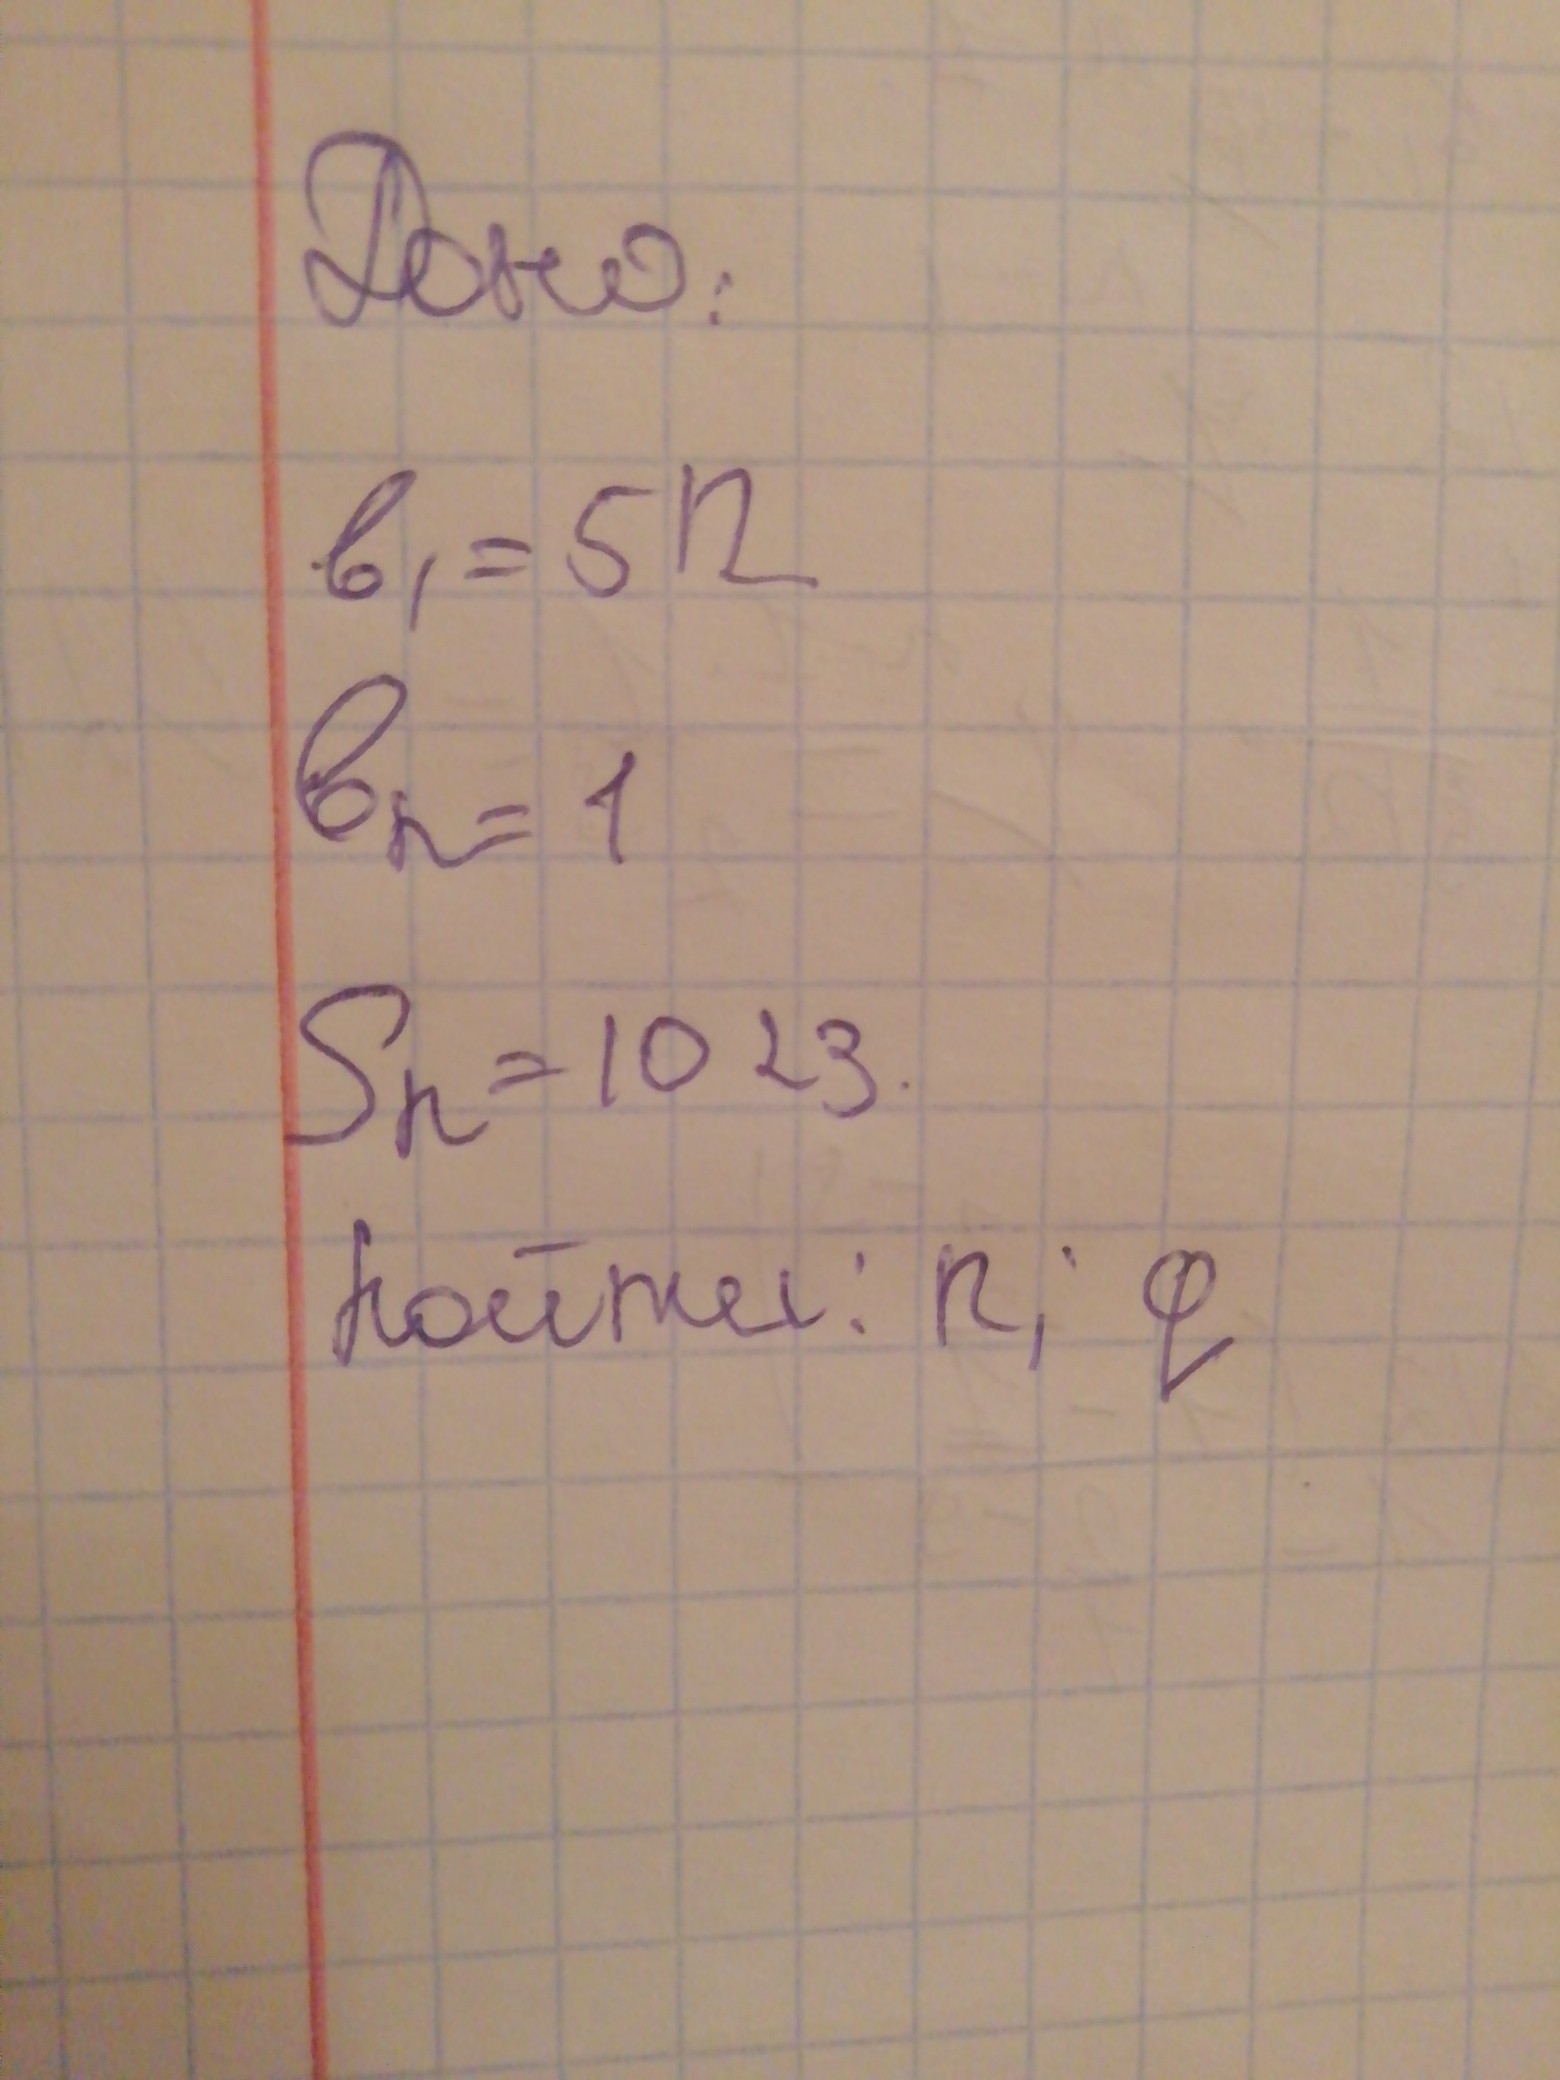 Дано:
b₁ = 512
bₙ = 1
Sₙ = 1023.
Найти: n; q